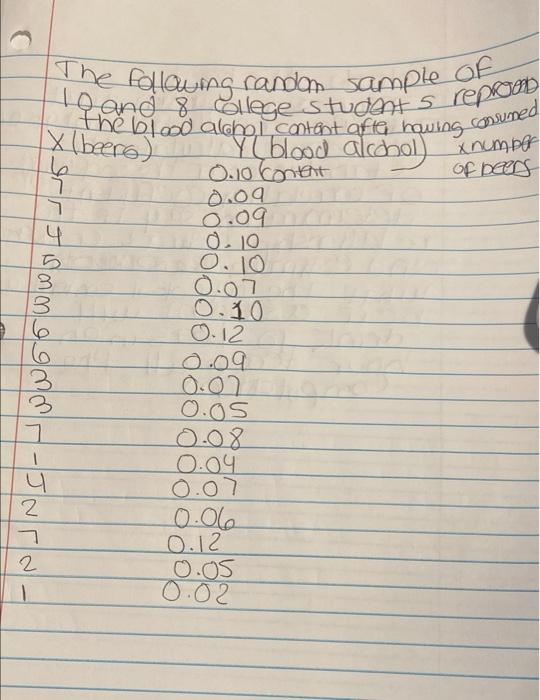 The following random sample of
10 and 8 college students represents
the blood alcohol content after having consumed
X (beers) Y (blood alcohol) x number
6 0.10 content of beers
7 0.09
7 0.09
4 0.10
5 0.10
3 0.07
3 0.10
6 0.12
6 0.09
3 0.07
3 0.05
7 0.08
1 0.04
4 0.07
2 0.06
7 0.12
2 0.05
1 0.02